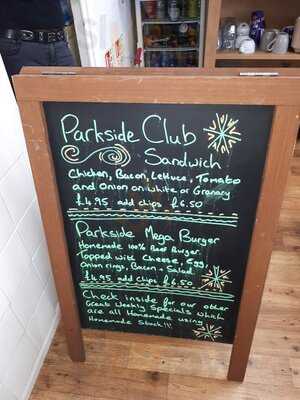 Parkside Club
Sandwich
Chicken, Bacon, Lettuce, Tomato
and Onion on white or Granary
£4.95 add chips £6.50
Parkside Mega Burger
Homemade 100% Beef Burger
Topped with Cheese, Egg,
Onion rings, Bacon + Salad
£4.95 add chips £6.50
Check inside for our other
Great Weekly Specials which
are all Homemade using
Homemade Stock!!!